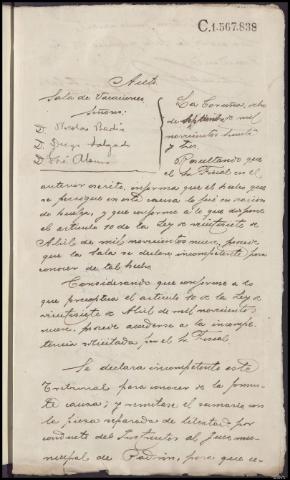 C.1.567.838
Auto
Sala de Vacaciones
Señores
D. Nicolas
D. Diego Salgado
D. José Alonso
La Coruña, ocho
de septiembre de mil
novecientos treinta
y tres.
Resultando que
el Sr Fiscal en el
anterior escrito, informa que el hecho que
se persigue en esta causa lo fué en ocasión
de huelga, y que conforme a lo que dispone
el artículo 10 de la Ley de veintisiete de
Abril de mil novecientos nueve, procede
que la Sala se declare incompetente para
conocer de tal hecho.
Considerando que conforme a lo
que preceptúa el artículo 10 de la Ley de
veintisiete de Abril de mil novecientos
nueve, procede accederse a la incompe-
tencia solicitada por el Sr Fiscal.
Se declara incompetente este
Tribunal para conocer de la presen-
te causa; y remítase el sumario con
la pieza separada de libertad por
conducto del Instructor al Juez mu-
nicipal de Padrón, para que